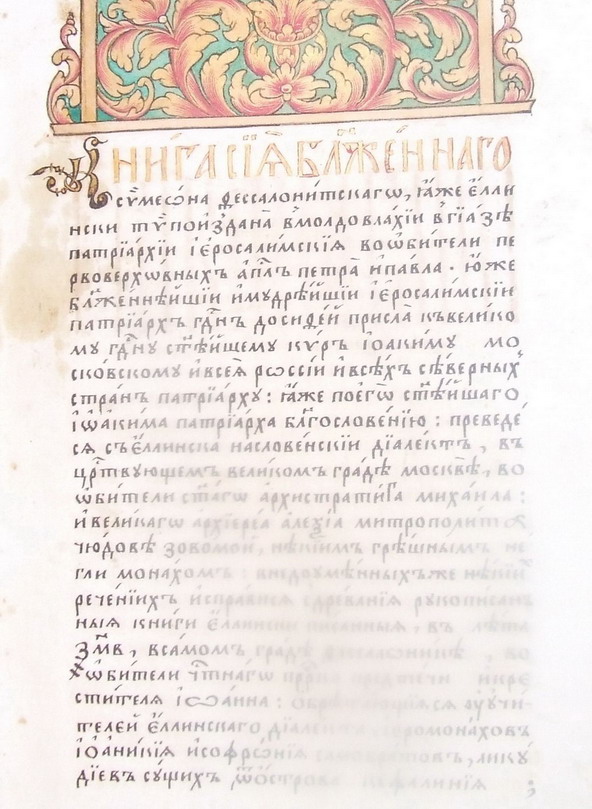 КНИ́ГА СЇѦ̀ БЛ҃ЖЕ́ННАГО
сѷмеѡ́на ѳессалони́тскагѡ, ꙗ҆́же є҆́лли
нски тѷ́по и҆́здана̀ в̾молдовлахі́и в̾гїа́зѣ
патрїа́рхїи і҆еросали́мскїѧ во ѡ҆би́тели пе
рвоверхѡ́вныхъ а҆пⷭ҇лъ петра̀ и҆ па́вла · ю҆́же
бл҃же́ннѣйшїи и҆ мудрѣ́йшїи і҆еросали́мскїи
патрїа́рхъ гдⷭ҇нъ досиѳе́й присла̀ къ вели́ко
му гдⷭ҇ну ст҃ѣ́йшему кѵ́ръ і҆ѡаки́му мо
ско́вскому и҆ всеѧ̀ рѡссі́и и҆ всѣ́хъ сѣ́верныхъ
стра́нъ патрїа́рху : ꙗ҆́же по є҆гѡ̀ ст҃ѣ́йшаго
і҆ѡаки́ма патрїа́рха блг҃ослове́нїю : преведе́
сѧ съ є҆́ллинска на слове́нскїи дїале́ктъ , въ
црⷭ҇твующемъ вели́комъ гра́дѣ москвѣ̀ , во
ѡ҆би́тели ст҃а́гѡ а҆рхистрати́га михаи́ла :
и҆ вели́кагѡ а҆рхїере́а а҆леѯі́а митрополи́та
чю́довѣ зово́мой , нѣ́кїимъ грѣ́шнымъ не
гли мона́хомъ : внедоумѣ́нныхъ же нѣ́кїи
рече́нїихъ и҆спра́висѧ древлнїѧ рукописан
ныѧ кни́ги є҆́ллински пи́санныѧ , въ лѣ́та
҂зм҃в , в само́мъ гра́дѣ во
ѡ҆би́тели чтⷭ҇на́гѡ предте́чи и҆ кре
сти́телѧ і҆ѡа́нна : ѡ҆брѣта́ющїѧсѧ у҆ у҆чи́
телей є҆́ллинскаго дїале́кта і҆еромона́ховъ
і҆ѡани́кїѧ и҆ софро́нїѧ , лику́
дїевъ су́щихъ ѿ ѻ҆́строва кефали́нїѧ